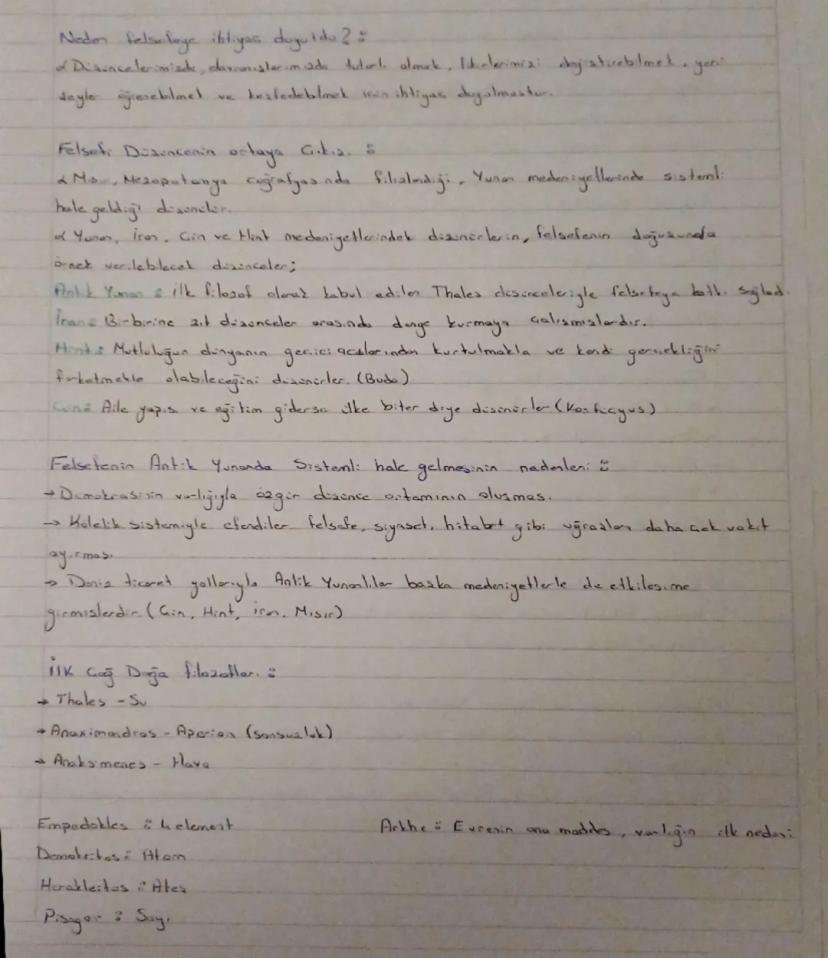 Neden felsefeye ihtiyaç duyuldu? :
Düşüncelerimizde, davranışlarımızda tutarlı olmak, fikirlerimizi değiştirebilmek, yeni
şeyler öğrenebilmek ve keşfedebilmek için ihtiyaç duyulmuştur.
Felsefi Düşüncenin ortaya Çıkışı :
Mısır, Mezopotamya coğrafyasında filizlendiği, Yunan medeniyetlerinde sistemli
hale geldiği düşünülür.
Yunan, İran, Çin ve Hint medeniyetlerindeki düşünürlerin, felsefenin doğuşunda
örnek verilebilecek düşünceler;
Antik Yunan : ilk filozof olarak kabul edilen Thales düşünceleriyle felsefeye katkı sağladı.
İran : Birbirine zıt düşünceler arasında denge kurmaya çalışmışlardır.
Hint : Mutluluğun dünyanın geçici acılarından kurtulmakla ve kendi gerçekliğini
farketmekle olabileceğini düşünürler. (Buda)
Çin : Aile yapısı ve eğitim giderse ülke biter diye düşünürler (Konfüçyüs)
Felsefenin Antik Yunanda Sistemli hale gelmesinin nedenleri :
→ Demokrasinin varlığıyla özgür düşünce ortamının oluşması.
→ Kölelik sistemiyle efendiler felsefe, siyaset, hitabet gibi uğraşlara daha çok vakit
ayırması.
→ Deniz ticaret yollarıyla Antik Yunanlılar başka medeniyetlerle de etkileşime
girmişlerdir. (Çin, Hint, İran, Mısır)
İlk Çağ Doğa filozofları :
→ Thales - Su
→ Anaximandros - Aperion (sonsuzluk)
→ Anaksimenes - Hava
Empedokles : 4 element Arkhe : Evrenin ana maddesi, varlığın ilk nedeni
Demokritos : Atom
Herakleitos : Ateş
Pisagor : Sayı